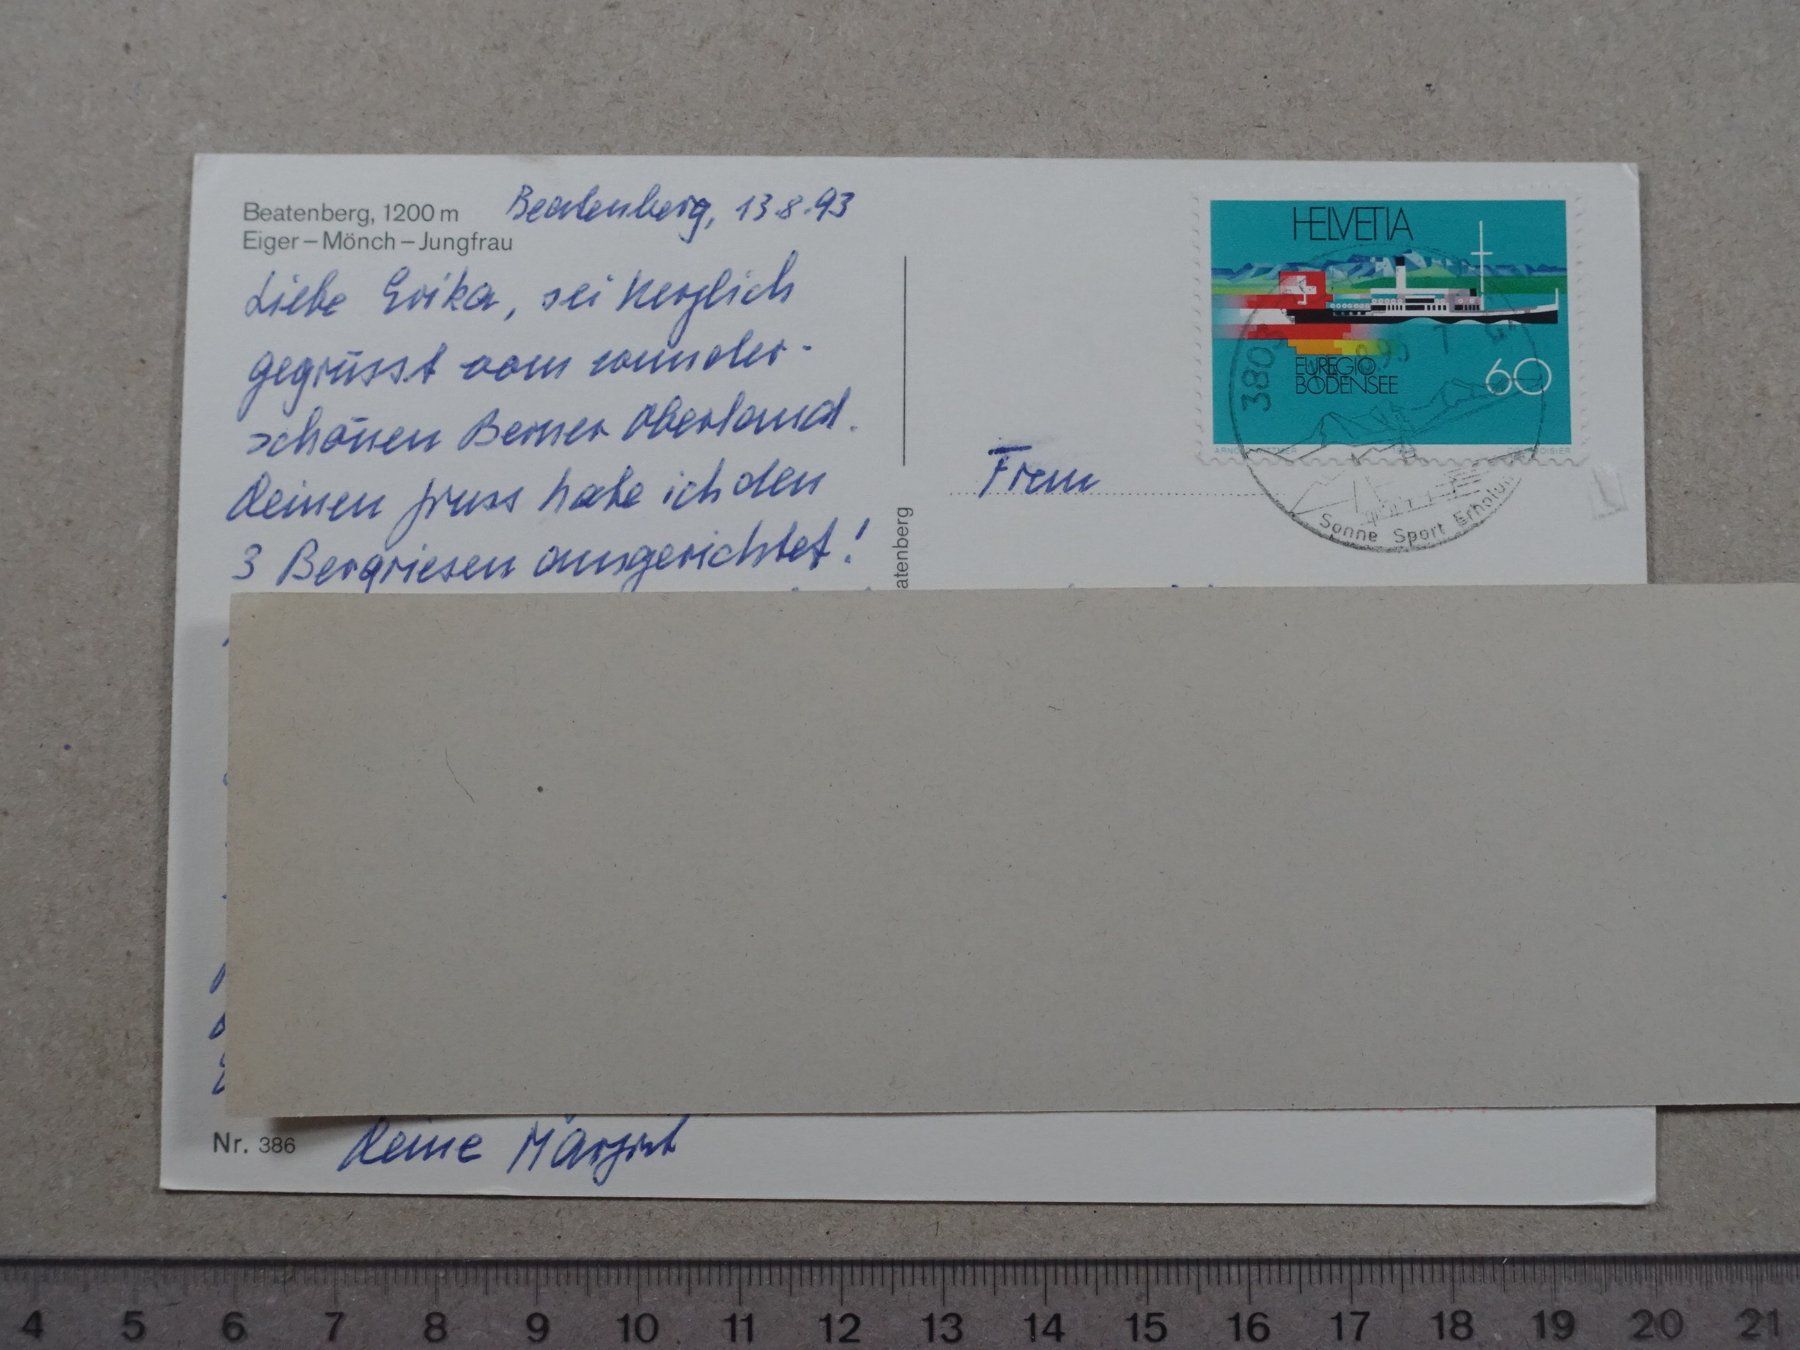 Beatenberg, 1200 m
Eiger – Mönch – Jungfrau
Beatenberg, 13.8.93
Liebe Erika, sei herzlich
gegrüsst vom wunder-
schönen Berner Oberland.
Deinen Gruss habe ich den
3 Bergriesen ausgerichtet!
Deine Margrit
Nr. 386
atenberg
HELVETIA
EUREGIO
BODENSEE
60
380
Sonne Sport Erholu
4 5 6 7 8 9 10 11 12 13 14 15 16 17 18 19 20 21